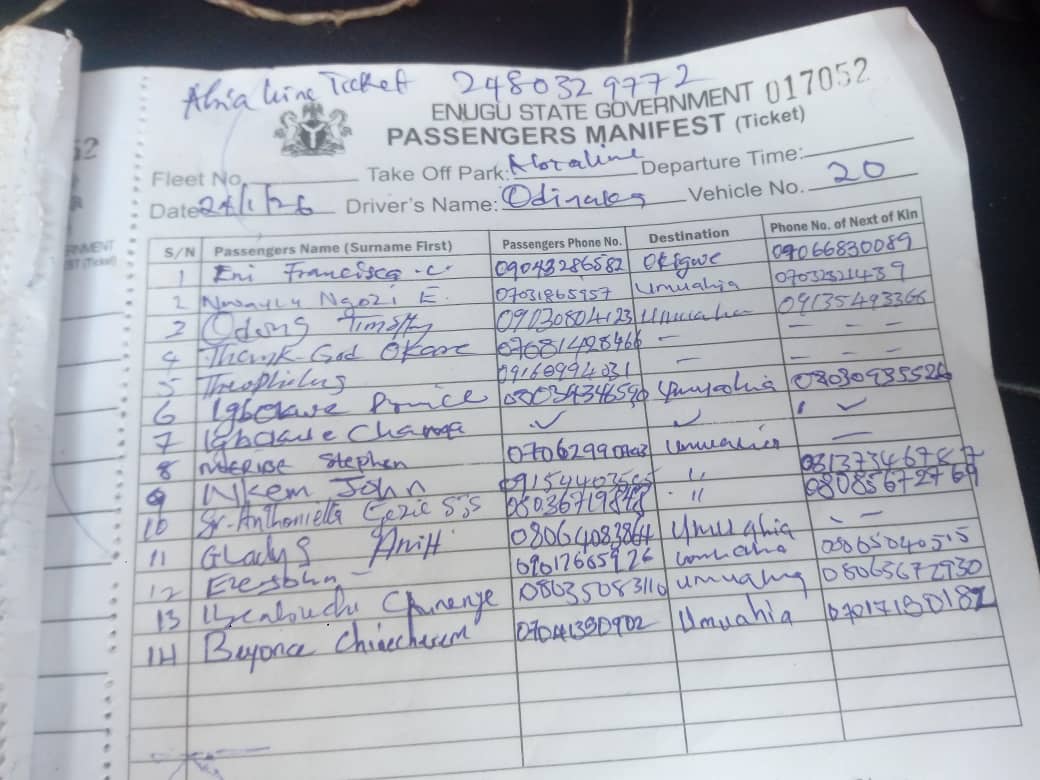 Abia Line Ticket 2480329772
ENUGU STATE GOVERNMENT 017052
PASSENGERS MANIFEST (Ticket)
Fleet No. Take Off Park: Abialine Departure Time:
Date 24/1/26 Driver's Name: Odinaka Vehicle No. 20
S/N Passengers Name (Surname First) Passengers Phone No. Destination Phone No. of Next of Kin
1 Eni Francisca .C. 09043286582 Okigwe 09066830089
2 Ngozi E. 07031865957 Umuahia 07032321439
3 Odong Timothy 09130804123 Umuahia 09135493366
4 Thank-God Okare 07081428466 — — — —
5 Theophilus 09160994031 — — — —
6 Igbokwe Prince 08039346590 Umuahia 08030935526
7 Igbokwe ✓ ✓ ✓
8 Stephen Umuahia —
9 Nkem John " 08137346787
10 Sr. Anthonietta " 08085672769
11 Glady S Anih 08064083864 Umuahia - -
12 09017665926 Umuahia 08065040515
13 Chinenye 08035083110 Umuahia 08065672930
14 Beyonce Chinecherem 07041390902 Umuahia 07017180182